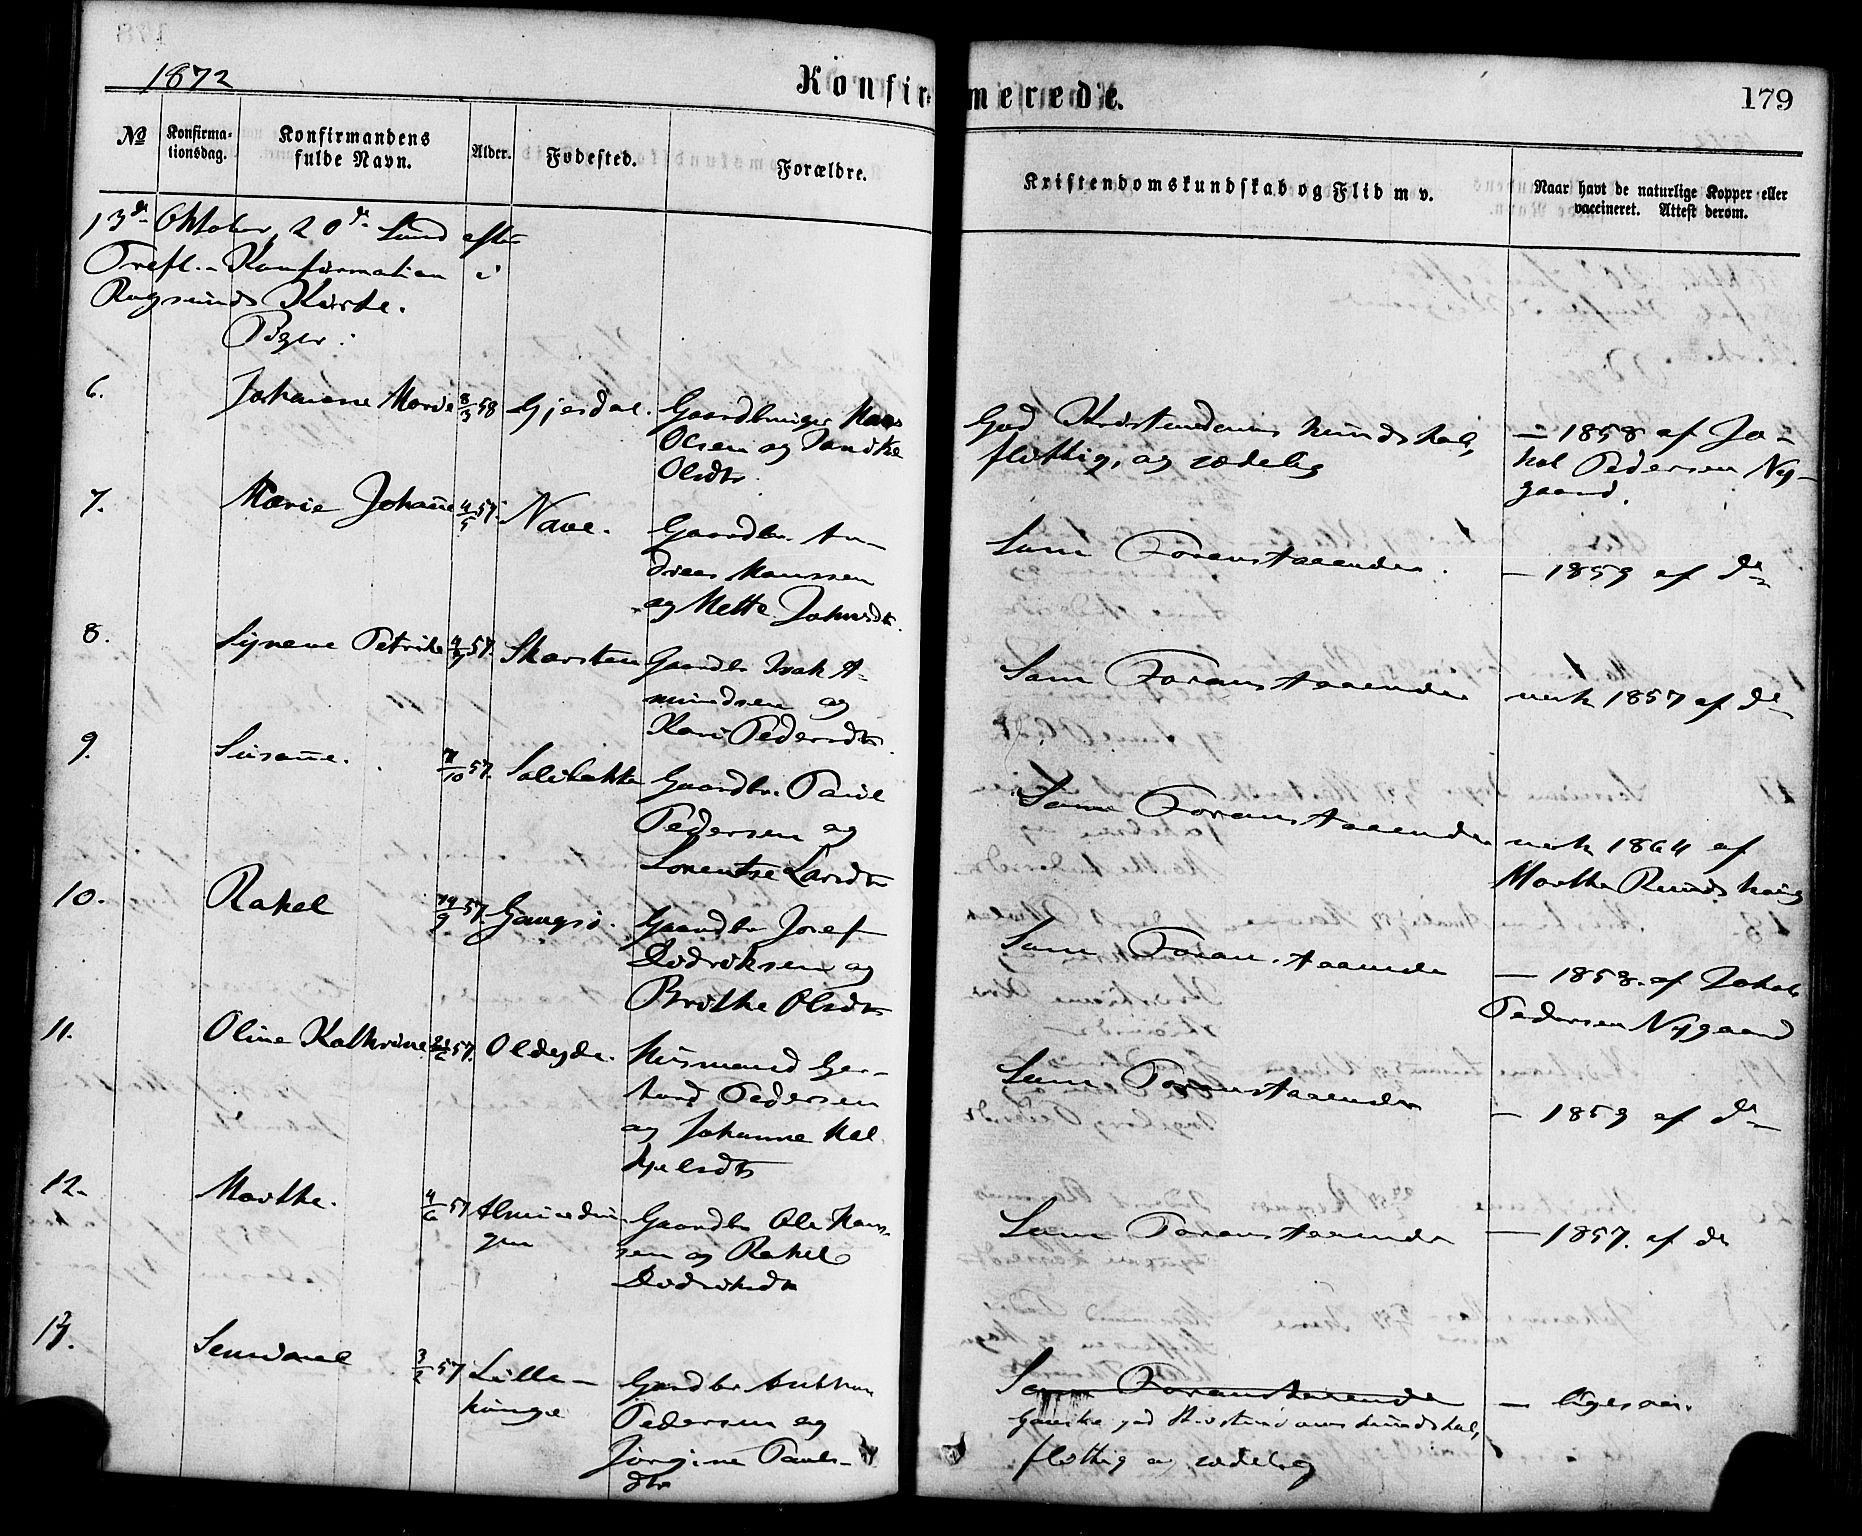 1872
Konfirmerede.
179
No
Konfirma-
tionsdag.
Konfirmandens
fulde Navn.
Alder.
Fødested.
Forældre.
Kristendomskundskab og Flid m v.
Naar havt de naturlige Kopper eller
vaccineret. Attest derom.
13de Oktober, 20de Sønd efter
Trefl. - Konfirmation i
Rugsunds Kirke.
Piger:
6.
Johanne Marie
8/3 58
Gjesdal.
Gaardbruger
Olsen og
Olsdtr.
God Kristendomskundskab,
flittig, og sædelig
— 1858 af Ja-
kob Pedersen Ny-
gaard.
7.
Marie Johanne
4/5 57.
Nave.
Gaardbr. An-
dreas Monssen
og Mette Johnsdtr.
Som Foranstaaende.
— 1859 af do
8.
Synneve Petrike
57.
Skarsten
Gaardbr Isak A-
mundsen og
Kari Pedersdtr.
Som Foranstaaende
1857 af do
9.
Susanne.
7/10 57.
Gaardbr. Paul
Pedersen og
Lorentse Larsdtr
Som Foranstaaende
1864 af
Marthe
10.
Rakel
57.
Gangsø.
Gaardbr Josef
Didriksen og
Brithe Olsdtr
Som Foranstaaende
— 1858. af Jakob
Pedersen Nygaard
11.
Oline Kathrine
57.
Oldeide.
Husmand Ger-
hard Pedersen
og Johanne Hal-
Som Foranstaaende
— 1859 af do
12.
Marthe.
4/6 57
Almindin-
gen
Gaardbr Ole Hans-
sen og Rakel
Didriksdtr
Som Foranstaaende
— 1857. af do
13.
3/2 57
Lille-
Gaardbr Anthon
Pedersen og
Jørgine Pauls-
dtr
Som Foranstaaende
Ganske god Kristendomskundskab,
flittig og sædelig
— ligesaa.